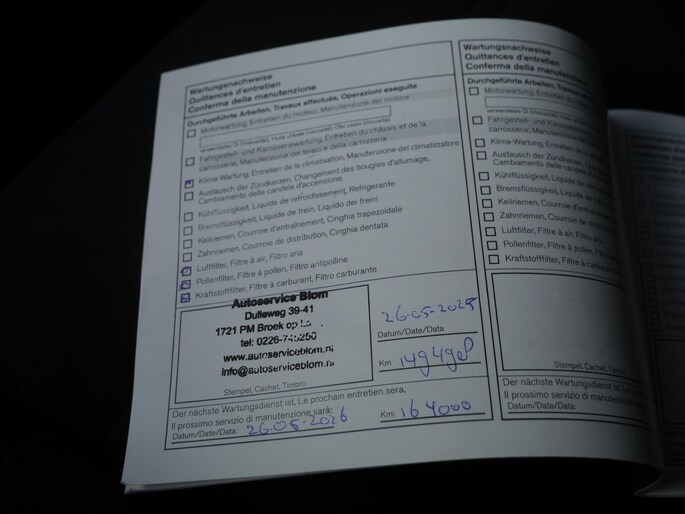 Wartungsnachweise
Quittances d'entretien
Conferma della manutenzione
Durchgeführte Arbeiten, Travaux effectués, Operazioni eseguite
Motorwartung, Entretien du moteur, Manutenzione del motore
verwendetes Öl (Viscosität), Huile utilisée (viscosité), Olio usato (viscosità)
Fahrgestell- und Karosseriewartung, Entretien du châssis et de la
carrosserie, Manutenzione del telaio e della carrozzeria
Klima-Wartung, Entretien de la climatisation, Manutenzione del climatizzatore
Austausch der Zündkerzen, Changement des bougies d'allumage,
Cambiamento delle candele d'accensione
Kühlflüssigkeit, Liquide de refroidissement, Refrigerante
Bremsflüssigkeit, Liquide de frein, Liquido dei freini
Keilriemen, Courroie d'entraînement, Cinghia trapezoidale
Zahnriemen, Courroie de distribution, Cinghia dentata
Luftfilter, Filtre à air, Filtro aria
Pollenfilter, Filtre à pollen, Filtro antipolline
Kraftstofffilter, Filtre à carburant, Filtro carburante
Autoservice Blom
Dulleweg 39-41
1721 PM Broek op
tel: 0226-
www.autoserviceblom.nl
info@autoserviceblom.nl
Stempel, Cachet, Timbro
26-05-2025
Datum/Date/Data
Km 149498
Der nächste Wartungsdienst ist, Le prochain entretien sera,
Il prossimo servizio di manutenzione sarà:
Datum/Date/Data: 26-05-2026 Km: 164000
Wartungsnachweise
Quittances d'entretien
Conferma della manutenzione
Durchgeführte Arbeiten, Travaux
Motorwartung, Entretien du
verwendetes Öl (Viscosität), Huile utilisée
Fahrgestell- und Karosseriewartung
carrosserie, Manutenzione del
Klima-Wartung, Entretien de la
Austausch der Zündkerzen,
Cambiamento delle candele
Kühlflüssigkeit, Liquide de
Bremsflüssigkeit, Liquide de
Keilriemen, Courroie
Zahnriemen, Courroie de
Luftfilter, Filtre à air, Filtro aria
Pollenfilter, Filtre à pollen,
Kraftstofffilter, Filtre à carburant
Stempel, Cachet, Timbro
Der nächste Wartungsdienst ist,
Il prossimo servizio di manutenzione
Datum/Date/Data: